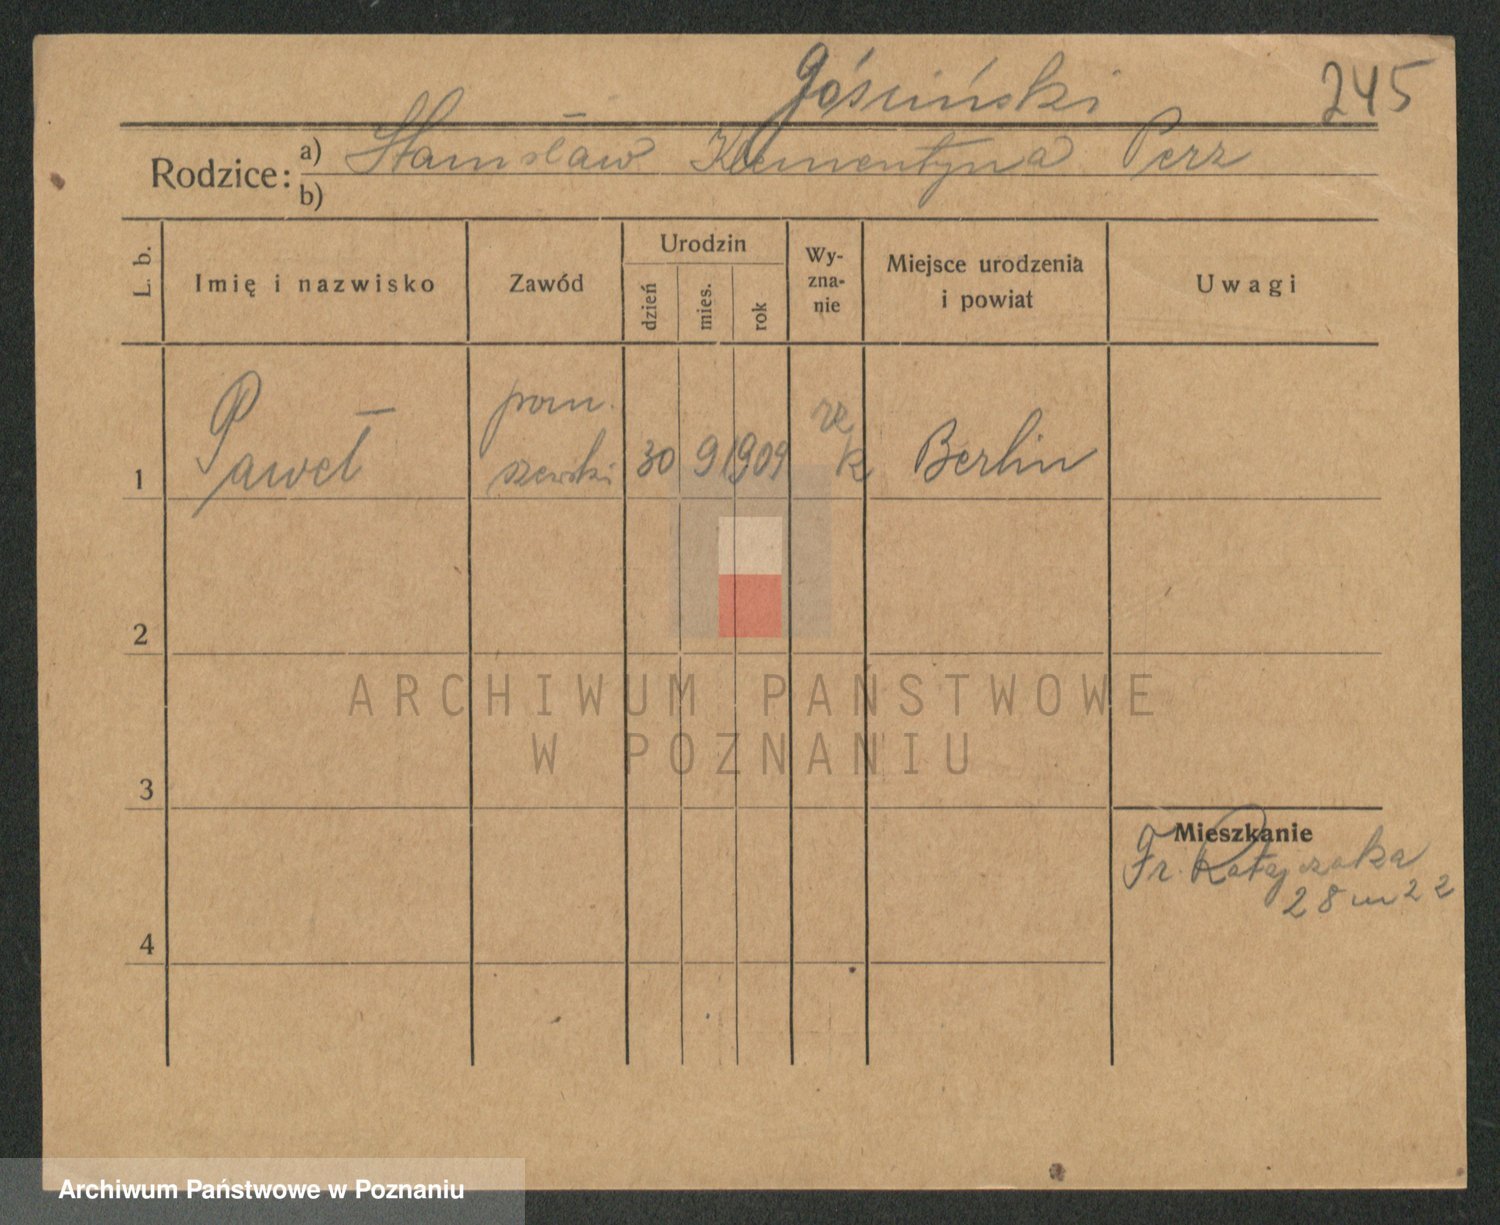 Gościński 245
Rodzice: a) Stanisław Klementyna Perz
b)
L. b. Imię i nazwisko Zawód Urodzin dzień mies. rok Wy-zna-nie Miejsce urodzenia i powiat Uwagi
1 Paweł pom. szewski 30 9 1909 rz k Berlin
2
ARCHIWUM PAŃSTWOWE
W POZNANIU
3
Mieszkanie
Fr. Ratajczaka
28 m 22
4
Archiwum Państwowe w Poznaniu